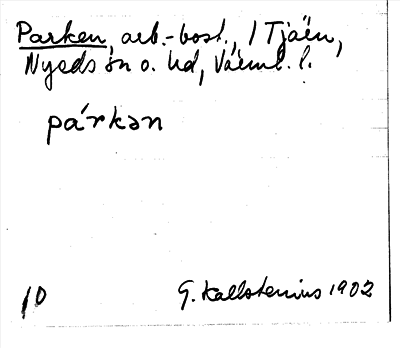 Parken, arb.-bost., / Tjäen,
Nyeds sn o. hd, Värml. l.
párkən
10
G. Kallstenius 1902